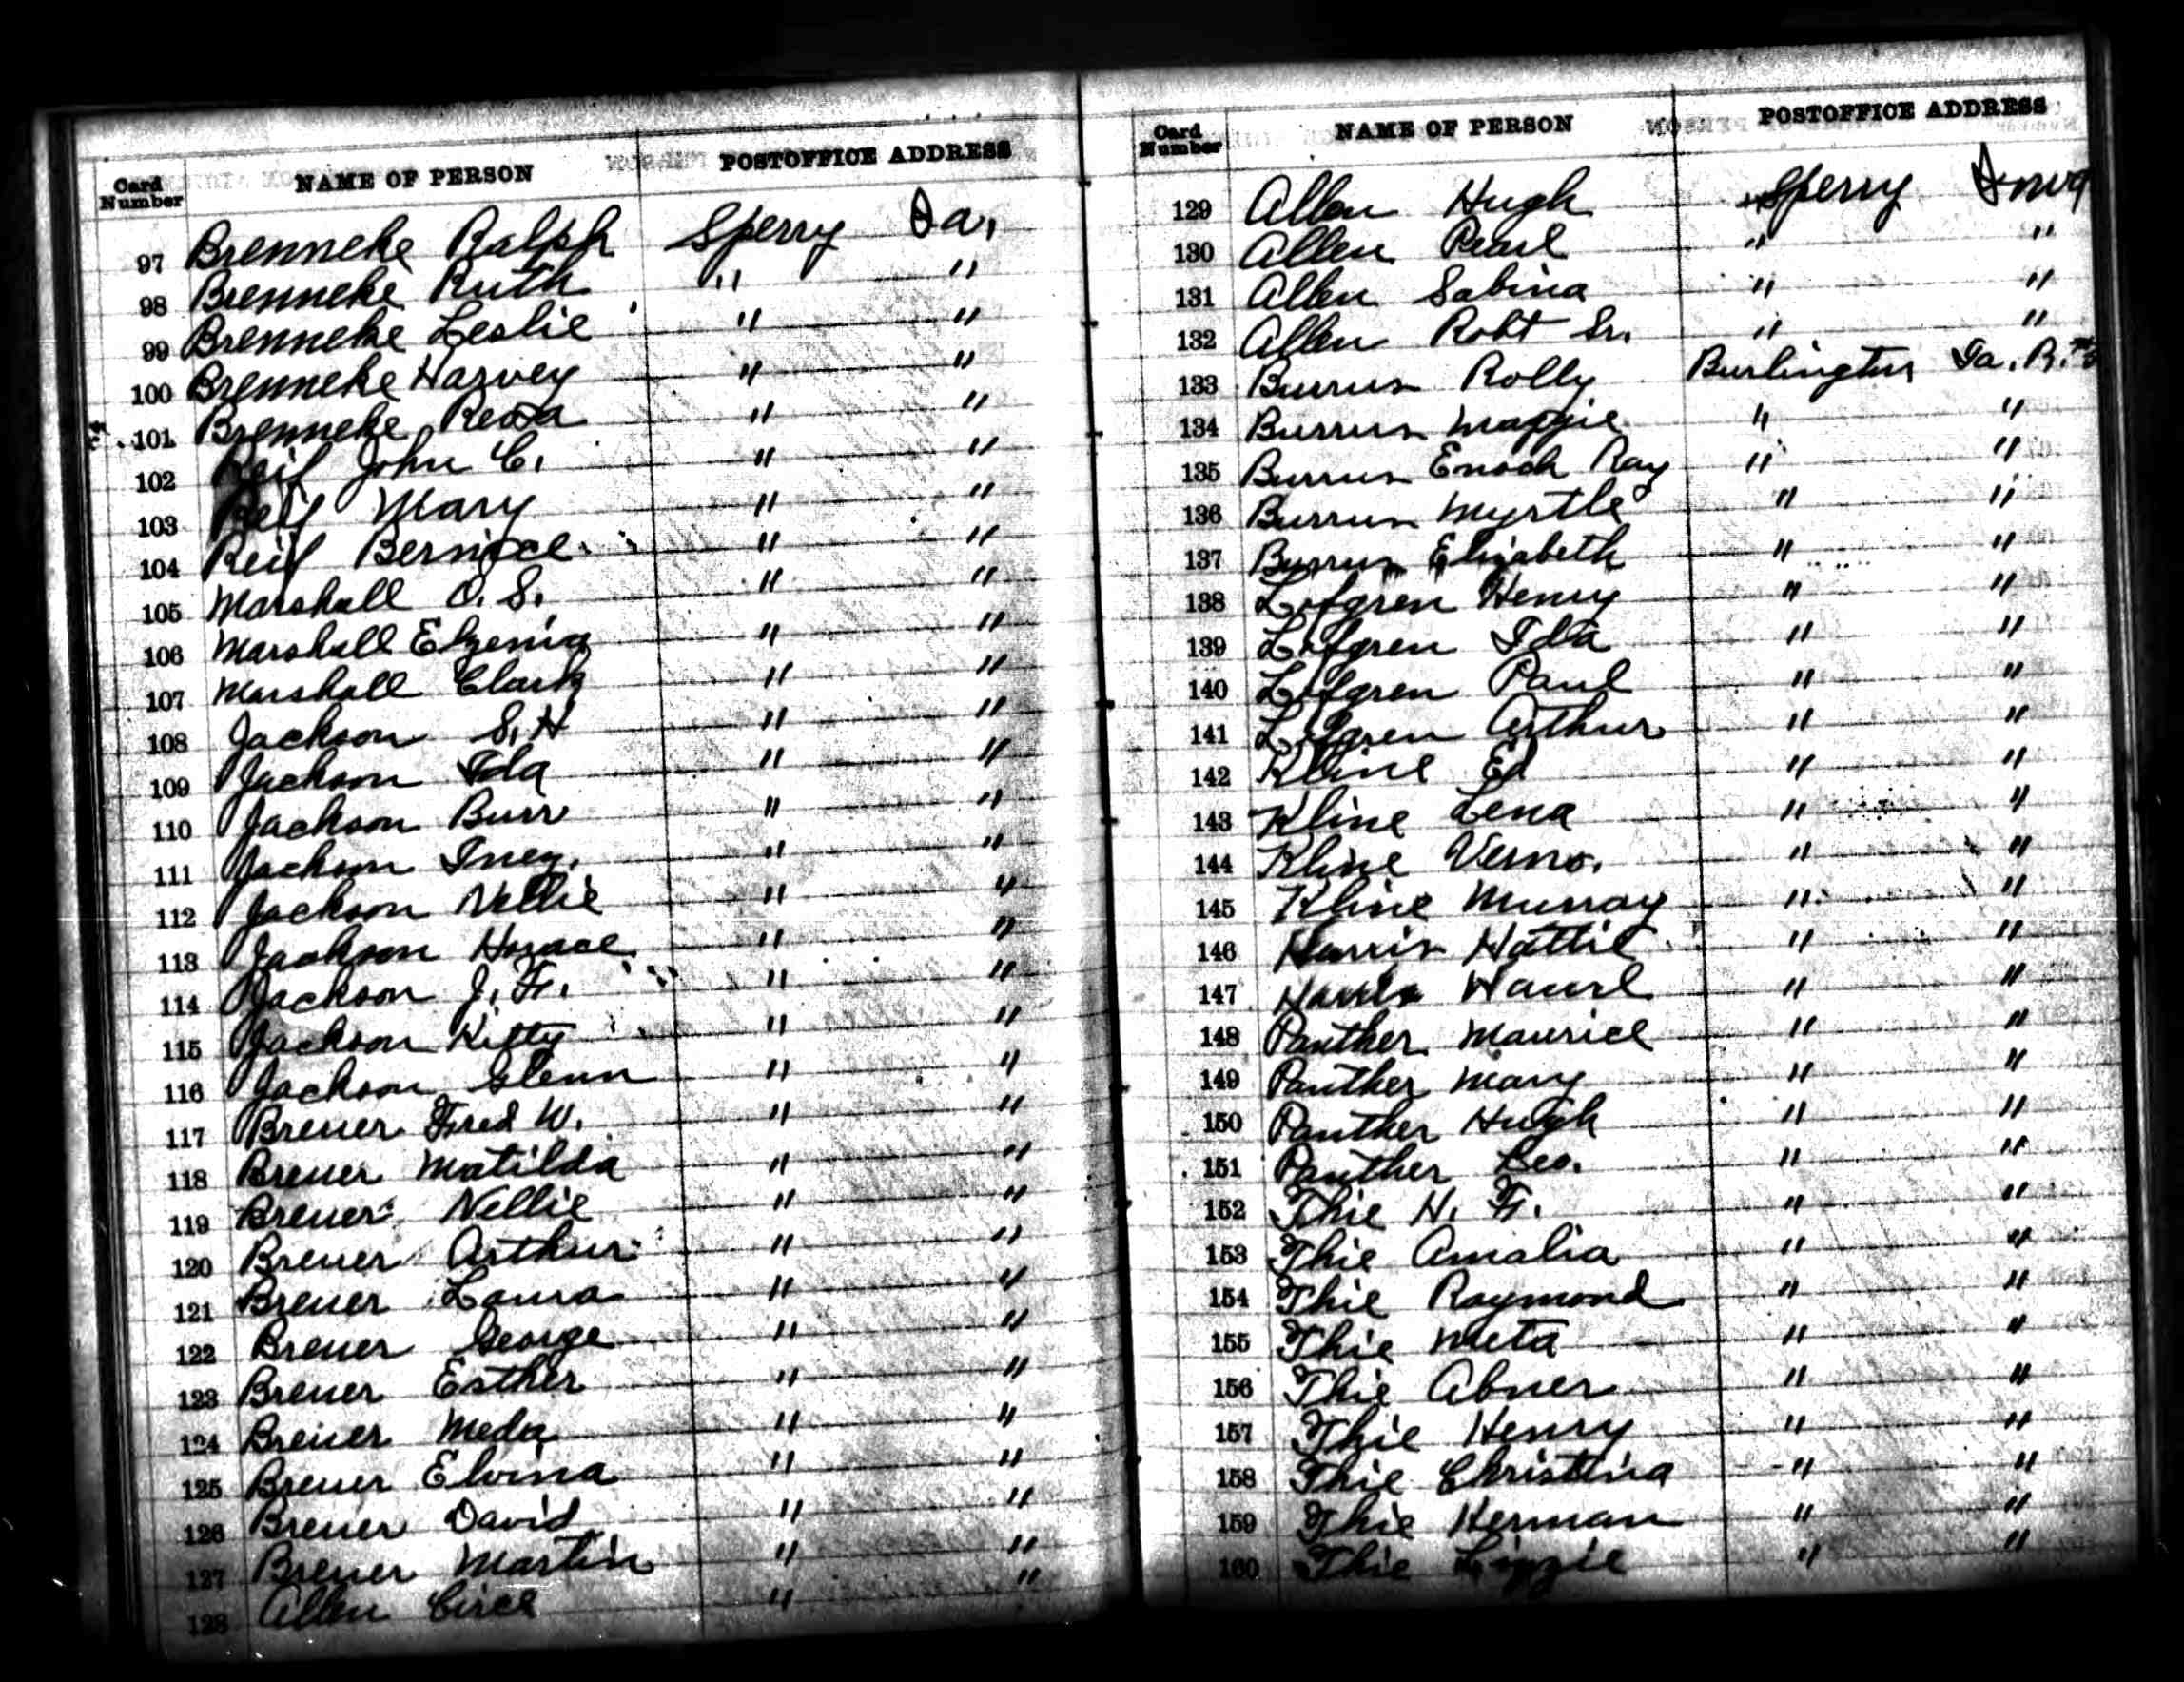 Card Number NAME OF PERSON POSTOFFICE ADDRESS
97 Brenneke Ralph Sperry Ia.
98 Brenneke Ruth " "
99 Brenneke Leslie " "
100 Brenneke Harvey " "
101 Brenneke Resa " "
102 Reif John C. " "
103 Reif Mary " "
104 Reif Bernice " "
105 Marshall O. S. " "
106 Marshall Elzenia " "
107 Marshall Clark " "
108 Jackson S. H " "
109 Jackson Ida " "
110 Jackson Burr " "
111 Jackson Inez. " "
112 Jackson Nellie " "
113 Jackson Horace " "
114 Jackson J. Fr. " "
115 Jackson Kitty " "
116 Jackson Glenn " "
117 Breuer Fred W. " "
118 Breuer Matilda " "
119 Breuer Nellie " "
120 Breuer Arthur " "
121 Breuer Laura " "
122 Breuer George " "
123 Breuer Esther " "
124 Breuer Meda " "
125 Breuer Elvina " "
126 Breuer David " "
127 Breuer Martin " "
128 Allen Circe " "
Card Number NAME OF PERSON POSTOFFICE ADDRESS
129 Allen Hugh Sperry Iowa
130 Allen Pearl " "
131 Allen Sabina " "
132 Allen Robt Sr. " "
133 Burrus Rolly Burlington Ia. R.
134 Burrus Maggie " "
135 Burrus Enoch Ray " "
136 Burrus Myrtle " "
137 Burrus Elizabeth " "
138 Lofgren Henry " "
139 Lofgren Ida " "
140 Lofgren Paul " "
141 Lofgren Arthur " "
142 Kline Ed " "
143 Kline Lena " "
144 Kline Verno. " "
145 Kline Murray " "
146 Harris Hattie " "
147 Harris " "
148 Panther Maurice " "
149 Panther Mary " "
150 Panther Hugh " "
151 Panther Leo. " "
152 Thie H. Fr. " "
153 Thie Amalia " "
154 Thie Raymond " "
155 Thie Meta " "
156 Thie Abner " "
157 Thie Henry " "
158 Thie Christina " "
159 Thie Herman " "
160 Thie Lizzie " "